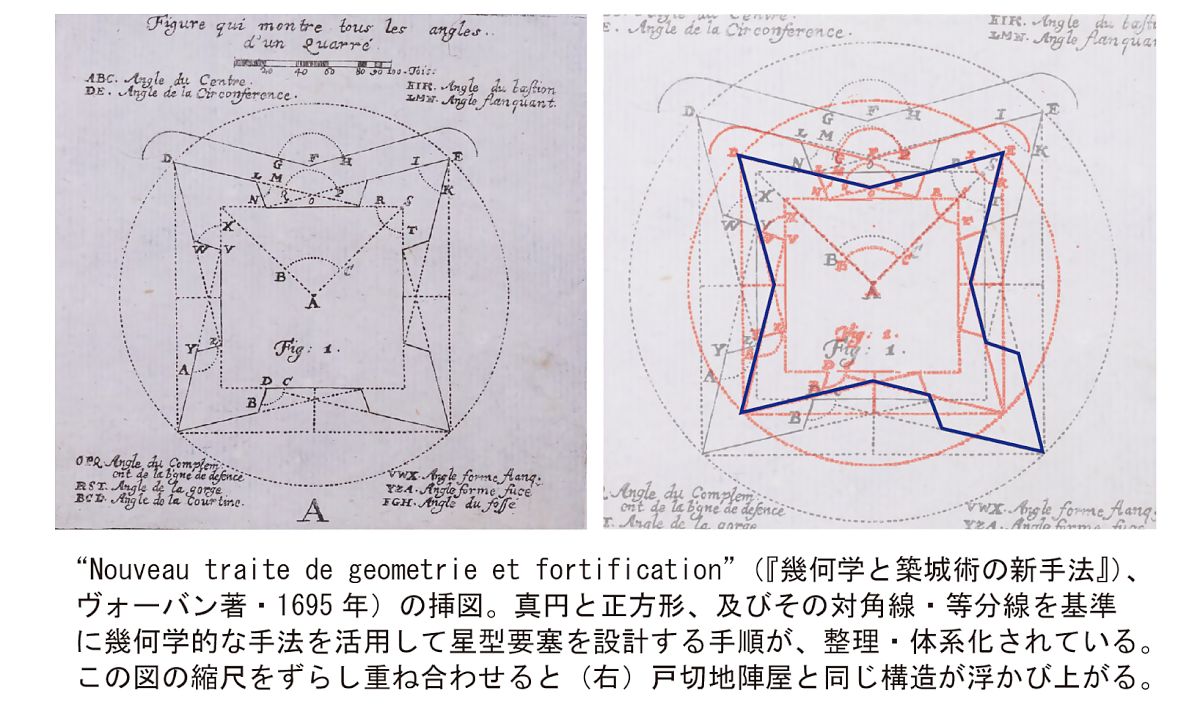 Figure qui montre tous les angles..
d'un Quarré.
20 40 60 80 90 100. Tois:
ABC. Angle du Centre.
DE. Angle de la Circonference.
EIK. Angle du bastion
LMN. Angle flanquant.
D
G
F
H
I
E
L
M
K
N
O
P
R
S
X
T
W
V
B
C
A
Fig: 1.
Y
Z
A
D C
B
OPQ. Angle du Complem
ent de la ligne de defence
RST. Angle de la gorge
BCD. Angle de la Courtine.
VWX. Angle forme flanq.
YZA. Angle forme fuce
FGH. Angle du fosse
A
du Centre.
Angle de la Circonference.
EIK. Angle du bastion
LMN. Angle flanquant
D
G
F
H
I
E
L
M
K
N
X
T
W
V
B
C
A
Fig: 1.
Fig: 1.
Y
A
D
B
Angle du Complem
ent de la ligne de defence
Angle de la gorge
VWX. Angle forme flanq.
YZA. Angle forme fuce
“Nouveau traite de geometrie et fortification”（『幾何学と築城術の新手法』）、
ヴォーバン著・1695 年）の挿図。真円と正方形、及びその対角線・等分線を基準
に幾何学的な手法を活用して星型要塞を設計する手順が、整理・体系化されている。
この図の縮尺をずらし重ね合わせると（右）戸切地陣屋と同じ構造が浮かび上がる。